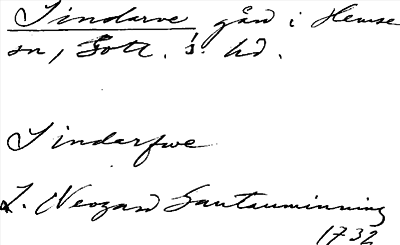 Sindarve gård i Hemse
sn, Gotl. s. hd.
Sindarfwe
L. Neogard Gautauminning
1732